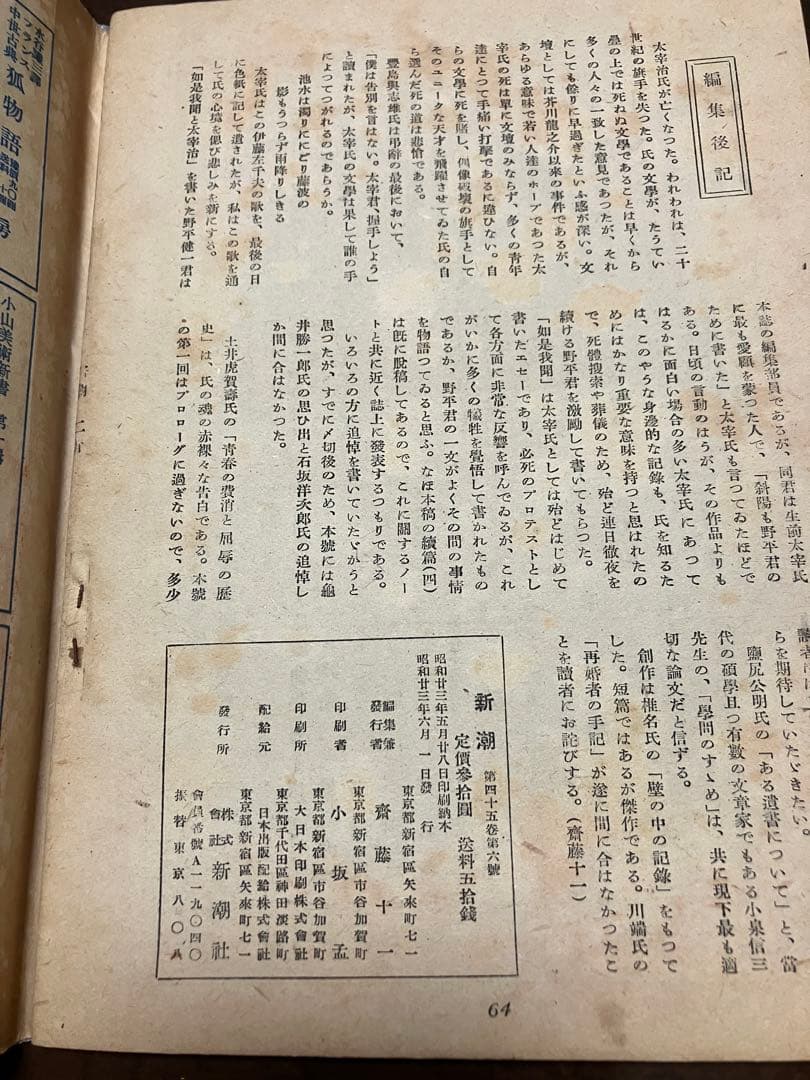 編集後記
太宰治氏が亡くなつた。われわれは、二十
世紀の旗手を失つた。氏の文學が、たうてい
疊の上では死ねぬ文學であることは早くから
多くの人々の一致した意見であつたが、それ
にしても餘りに早過ぎたといふ感が深い。文
壇としては芥川龍之介以來の事件であるが、
あらゆる意味で若い人達のホープであつた太
宰氏の死は單に文壇のみならず、多くの青年
達にとつて手痛い打撃であるに違ひない。自
らの文學に死を賭し、偶像破壞の旗手として
そのユニークな天才を飛躍させてゐた氏の自
ら選んだ死の道は悲愴である。
豐島與志雄氏は弔辭の最後において、
「僕は告別を言はない。太宰君、握手しよう」
と讀まれたが、太宰氏の文學は果して誰の手
によつてつがれるのであらうか。
池水は濁りににごり藤波の
影もうつらず雨降りしきる
太宰氏はこの伊藤左千夫の歌を、最後の日
に色紙に記して遺されたが、私はこの歌を通
して氏の心境を偲び悲しみを新にする。
「如是我聞と太宰治」を書いた野平健一君は
本誌の編集部員であるが、同君は生前太宰氏
に最も愛顧を蒙つた人で、「斜陽も野平君の
ために書いた」と太宰氏も言つてゐたほどで
ある。日頃の言動のはうが、その作品よりも
はるかに面白い場合の多い太宰氏にあつて
は、このやうな身邊的な記録も、氏を知るた
めにはかなり重要な意味を持つと思はれたの
で、死體搜索や葬儀のため、殆ど連日徹夜を
續ける野平君を激勵して書いてもらつた。
「如是我聞」は太宰氏としては殆どはじめて
書いたエセーであり、必死のプロテストとし
て各方面に非常な反響を呼んでゐるが、これ
がいかに多くの犠牲を覺悟して書かれたもの
であるか、野平君の一文がよくその間の事情
を物語つてゐると思ふ。なほ本稿の續篇(四)
は既に脱稿してあるので、これに關するノー
トと共に近く誌上に發表するつもりである。
いろいろの方に追悼を書いていたゞかうと
思つたが、すでに〆切後のため、本號には龜
井勝一郎氏の思ひ出と石坂洋次郎氏の追悼し
か間に合はなかつた。
土井虎賀壽氏の「青春の費消と屈辱の歴
史」は、氏の魂の赤裸々な告白である。本號
の第一回はプロローグに過ぎないので、多少
らを期待していたゞきたい。
鹽尻公明氏の「ある遺書について」と、當
代の碩學且つ有數の文章家でもある小泉信三
先生の、「學問のすゝめ」は、共に現下最も適
切な論文だと信ずる。
創作は椎名氏の「壁の中の記録」をもつて
した。短篇ではあるが傑作である。川端氏の
「再婚者の手記」が遂に間に合はなかつたこ
とを讀者にお詫びする。(齋藤十一)
新潮 第四十五卷第六號
定價參拾圓 送料五拾錢
昭和廿三年五月廿八日印刷納本
昭和廿三年六月一日發行
東京都新宿區矢來町七一
編集兼發行者 齋藤十一
東京都新宿區市谷加賀町
印刷者 小坂孟
東京都新宿區市谷加賀町
印刷所 大日本印刷株式會社
東京都千代田區神田淡路町
配給元 日本出版配給株式會社
東京都新宿區矢來町七一
發行所 株式會社 新潮社
會員番號A一一九〇四〇
振替東京八〇八
64
中世古典 狐物語
小山美術新書